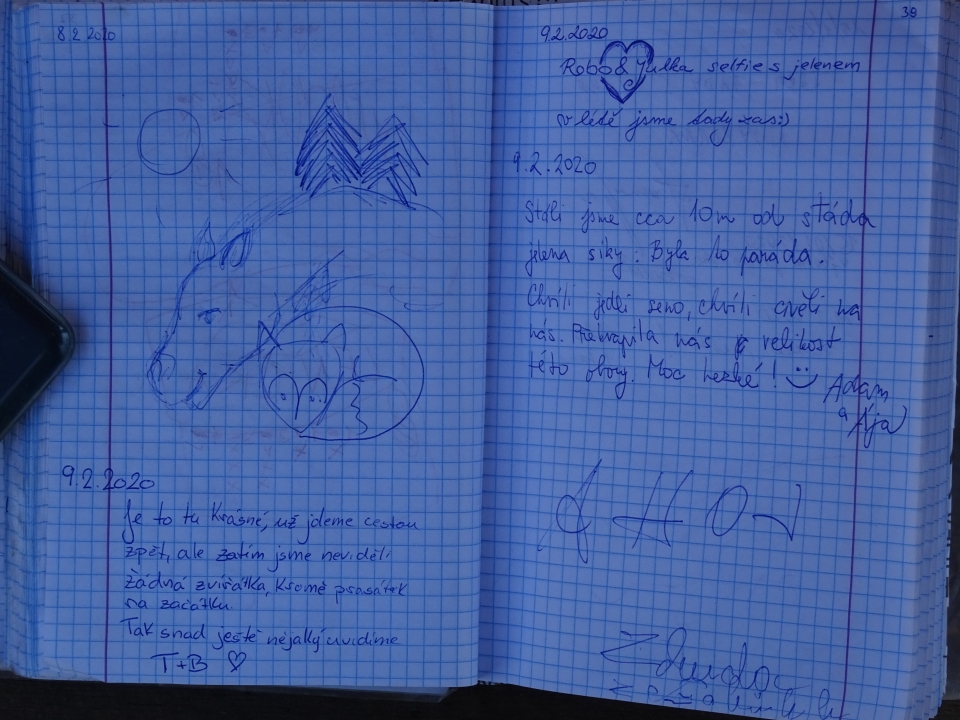 8 2 2020
9.2.2020
Je to tu krásné, už jdeme cestou
zpět, ale zatím jsme neviděli
žádná zvířátka, kromě prasátek
na začátku.
Tak snad ještě nějaký uvidíme
T+B ♡
39
9.2.2020
Robo & Julka selfie s jelenem
v létě jsme tady zas:)
9.2.2020
Stáli jsme cca 10m od stáda
jelena siky. Byla to paráda.
Chvíli jedli seno, chvíli čuměli na
nás. Překvapila nás velikost
této obory. Moc hezké! :)
Adam
a Ája
AHOJ